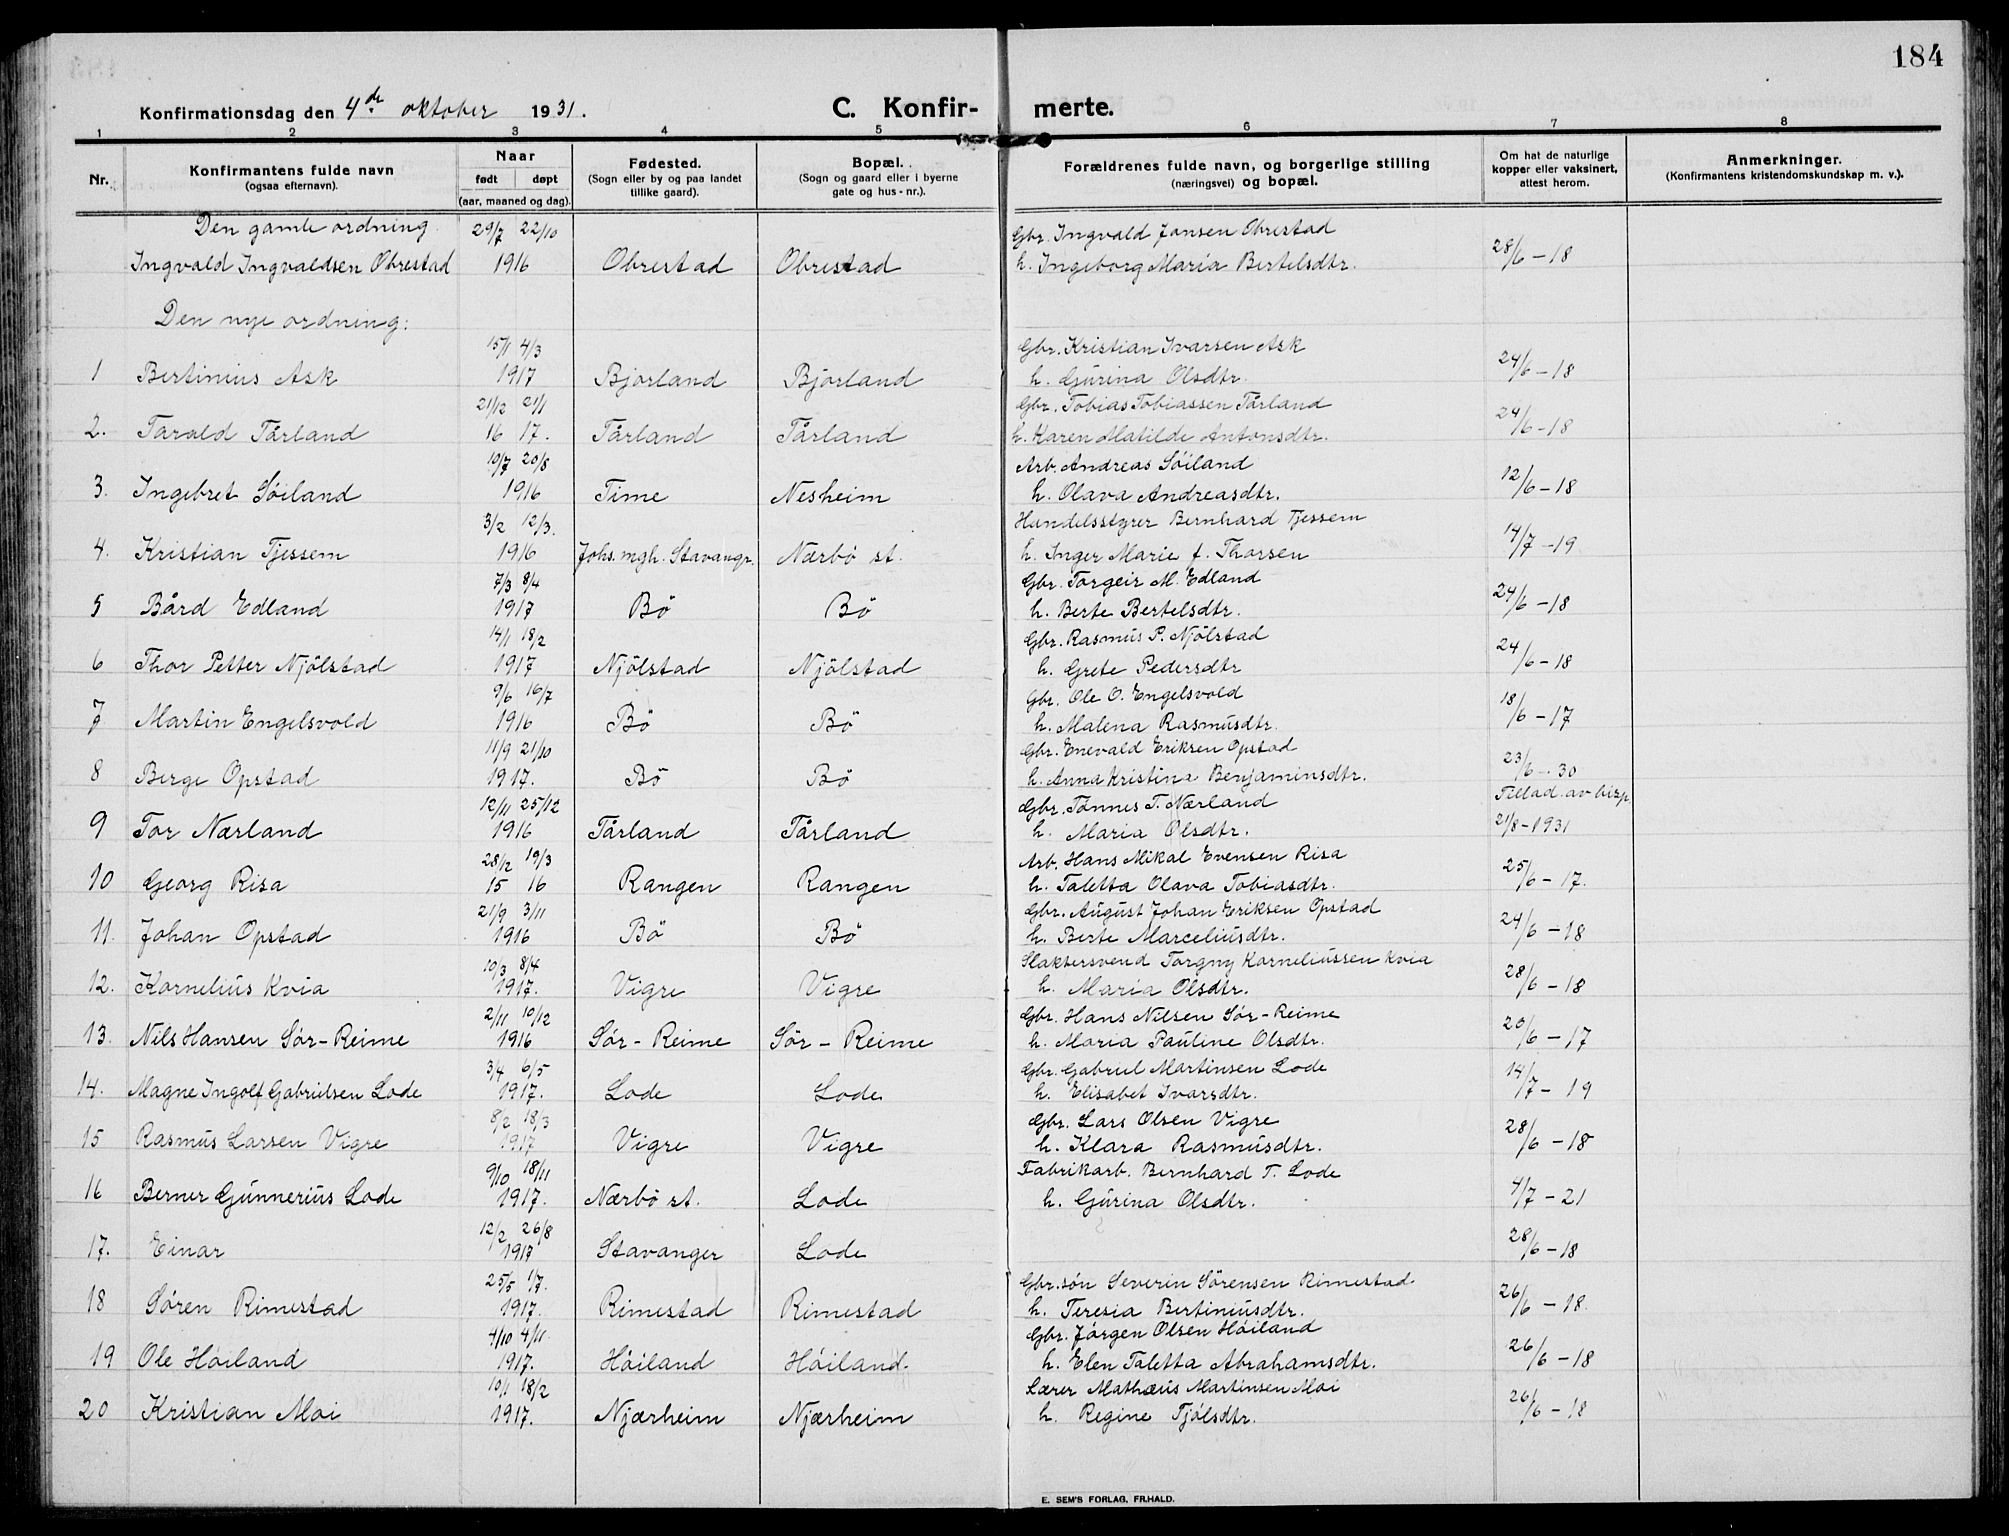 184
Konfirmationsdag den 4de oktober 1931.
C. Konfirmerte.
1 2 3 4 5 6 7 8
Nr.
Konfirmantens fulde navn
(ogsaa efternavn).
Naar
født døpt
(aar, maaned og dag).
Fødested.
(Sogn eller by og paa landet
tillike gaard).
Bopæl.
(Sogn og gaard eller i byerne
gate og hus-nr.).
Forældrenes fulde navn, og borgerlige stilling
(næringsvei) og bopæl.
Om hat de naturlige
kopper eller vaksinert,
attest herom.
Anmerkninger.
(Konfirmantens kristendomskundskap m. v.).
Den gamle ordning. 29/7 22/10 Gbr. Ingvald Jonsen Obrestad
Ingvald Ingvaldsen Obrestad 1916 Obrestad Obrestad h. Ingeborg Maria Bertelsdtr. 28/6-18
Den nye ordning:
15/1 4/3 Gbr. Kristian Ivarsen Ask
1 Bertinius Ask 1917 Bjorland Bjorland h. Gurina Olsdtr. 24/6-18
21/12 21/1 Gbr. Tobias Tobiassen Tårland
2. Tarald Tårland 16 17. Tårland Tårland h. Karen Matilde Antonsdtr. 24/6-18
10/7 20/8 Arb. Andreas Söiland
3. Ingebret Söiland 1916 Time Nesheim h. Olava Andreasdtr. 12/6-18
3/2 12/3. Handelsstyrer Bernhard Tjessem
4. Kristian Tjessem 1916 Johs. mgh. Stavangr. Nærbö st. h. Inger Marie f. Thorsen 14/7-19
7/3 8/4 Gbr. Torgeir M. Edland
5 Bård Edland 1917 Bö Bö h. Berte Bertelsdtr. 24/6-18
14/1 18/2 Gbr. Rasmus P. Njölstad
6 Thor Petter Njölstad 1917 Njölstad Njölstad h. Grete Pedersdtr 24/6-18
9/6 16/7 Gbr. Ole O. Engelsvold
7 Martin Engelsvold 1916 Bö Bö h. Malena Rasmusdtr. 18/6-17
11/9 21/10 Gbr. Enevald Eriksen Opstad
8 Berge Opstad 1917. Bö Bö h. Anna Kristina Benjaminsdtr. 23/6-30
12/11 25/12 Gbr. Tönnes T. Nærland Tillad. av bisp
9 Tor Nærland 1916 Tårland Tårland h. Maria Olsdtr. 21/8-1931
28/2 19/3 Arb. Hans Mikal Evensen Risa
10 Georg Risa 15 16 Rangen Rangen h. Taletta Olava Tobiasdtr. 25/6-17.
21/9 3/11 Gbr. August Johan Eriksen Opstad
11. Johan Opstad 1916 Bö Bö h. Berte Marceliusdtr. 24/6-18
10/3 8/4 Slaktersvend Torgny Korneliussen Kvia
12. Kornelius Kvia 1917. Vigre Vigre h. Maria Olsdtr. 28/6-18
2/11 10/12 Gbr. Hans Nilsen Sör-Reime
13. Nils Hansen Sör-Reime 1916 Sör-Reime Sör-Reime h. Maria Pauline Olsdtr. 20/6-17
3/4 6/5 Gbr. Gabriel Martinsen Lode
14. Magne Ingolf Gabrielsen Lode 1917. Lode Lode h. Elisabet Ivarsdtr. 14/7-19
8/2 18/3 Gbr. Lars Olsen Vigre
15 Rasmus Larsen Vigre 1917 Vigre Vigre h. Klara Rasmusdtr. 28/6-18
9/10 18/11 Fabrikarb. Bernhard T. Lode
16 Berner Gunnerius Lode 1917. Nærbö st. Lode h. Gurina Olsdtr. 4/7-21
12/2 26/8
17. Einar 1917 Stavanger Lode 28/6-18
25/5 1/7. Gbr.sön Severin Sörensen Rimestad
18 Sören Rimestad 1917. Rimestad Rimestad h. Teresia Bertiniusdtr. 26/6-18.
4/10 4/11. Gbr. Jörgen Olsen Höiland
19 Ole Höiland 1917. Höiland Höiland. h. Elen Taletta Abrahamsdtr. 26/6-18
10/1 18/2 Lærer Mathæus Martinsen Moi
20 Kristian Moi 1917. Njærheim Njærheim h. Regine Tjölsdtr. 26/6-18
E. SEM'S FORLAG, FR.HALD.